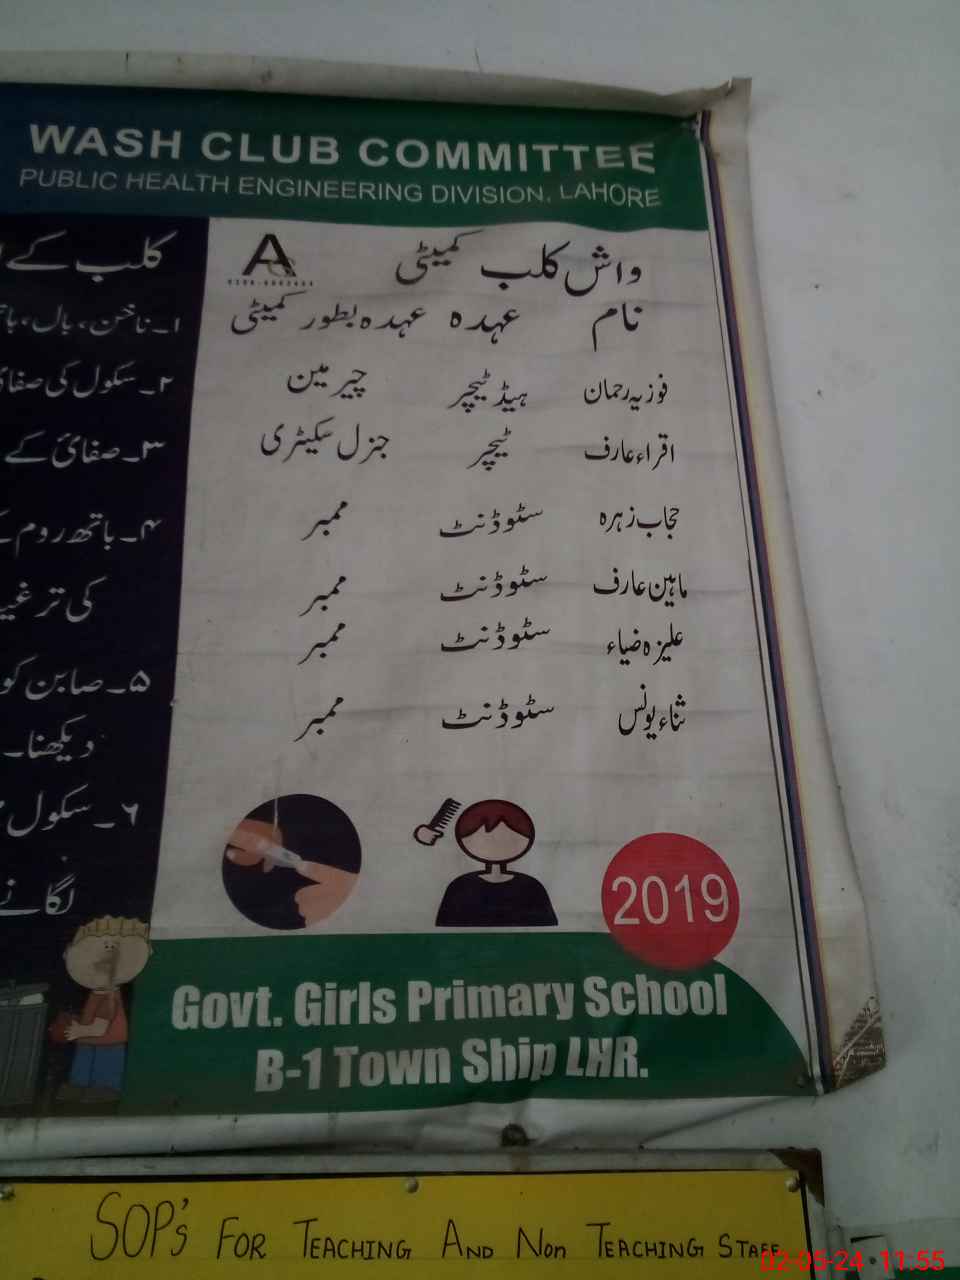 WASH CLUB COMMITTEE
PUBLIC HEALTH ENGINEERING DIVISION, LAHORE
واش کلب کمیٹی
A
نام عہدہ عہدہ بطور کمیٹی
فوزیہ رحمان ہیڈ ٹیچر چیرمین
اقراء عارف ٹیچر جنرل سیکیٹری
حجاب زہرہ سٹوڈنٹ ممبر
ماہین عارف سٹوڈنٹ ممبر
علیزہ ضیاء سٹوڈنٹ ممبر
ثناء یونس سٹوڈنٹ ممبر
کلب کے
۱۔ ناخن، بال،
۲۔ سکول کی
۳۔ صفائی کے
۴۔ باتھ روم
کی
۵۔ صابن کو
دیکھنا۔
۶۔ سکول
لگانے
2019
Govt. Girls Primary School
B-1 Town Ship LHR.
SOP's FOR TEACHING AND NON TEACHING STAFF
02-05-24 11:55